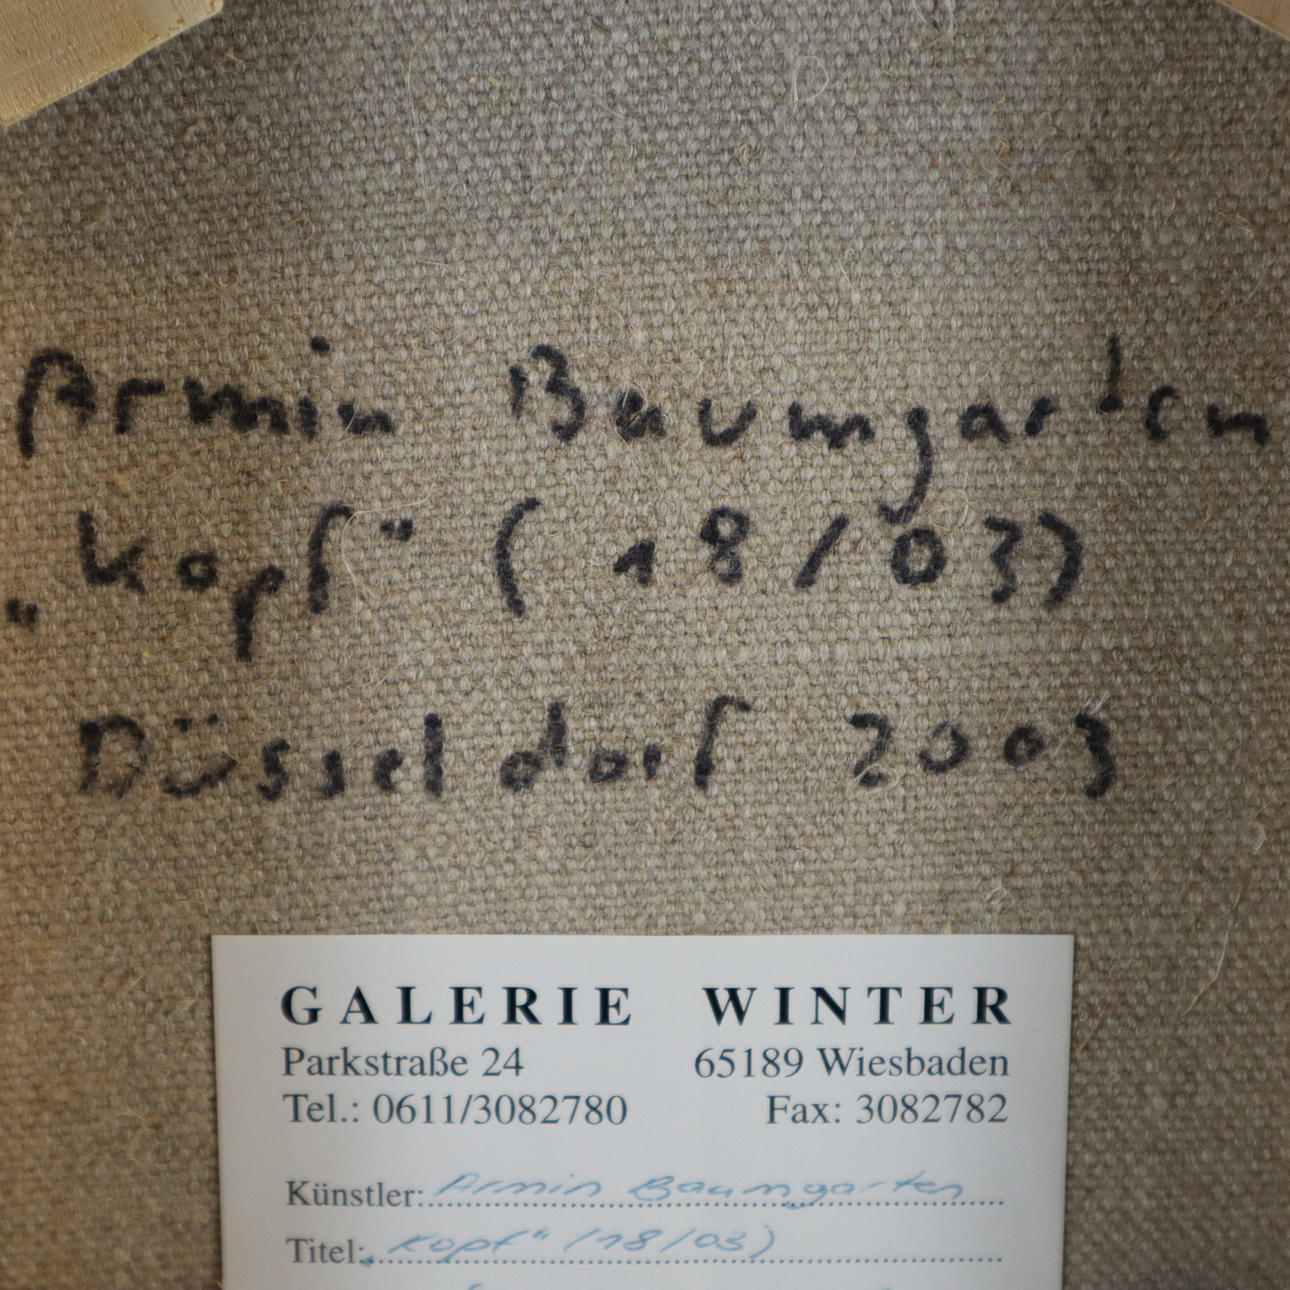 Armin Baumgarten
„Kopf“ (18/03)
Düsseldorf 2003
GALERIE WINTER
Parkstraße 24 65189 Wiesbaden
Tel.: 0611/3082780 Fax: 3082782
Künstler: Armin Baumgarten
Titel: „Kopf“ (18/03)